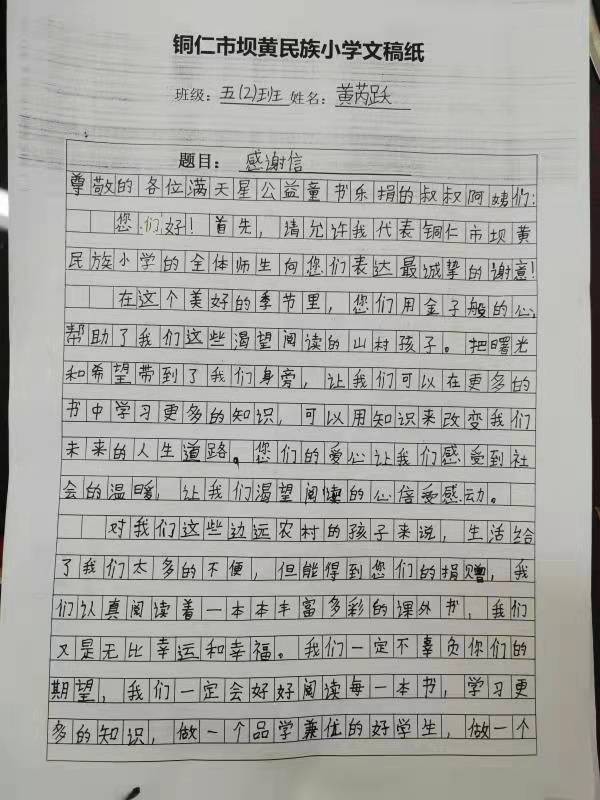 铜仁市坝黄民族小学文稿纸
班级：五(2)班 姓名：黄芮跃
题目：感谢信
尊敬的各位满天星公益童书乐捐的叔叔阿姨们：
您们好！首先，请允许我代表铜仁市坝黄
民族小学的全体师生向您们表达最诚挚的谢意！
在这个美好的季节里，您们用金子般的心，
帮助了我们这些渴望阅读的山村孩子。把曙光
和希望带到了我们身旁，让我们可以在更多的
书中学习更多的知识，可以用知识来改变我们
未来的人生道路。您们的爱心让我们感受到社
会的温暖，让我们渴望阅读的心倍受感动。
对我们这些边远农村的孩子来说，生活给
了我们太多的不便，但能得到您们的捐赠，我
们认真阅读着一本本丰富多彩的课外书，我们
又是无比幸运和幸福。我们一定不辜负你们的
期望，我们一定会好好阅读每一本书，学习更
多的知识，做一个品学兼优的好学生，做一个